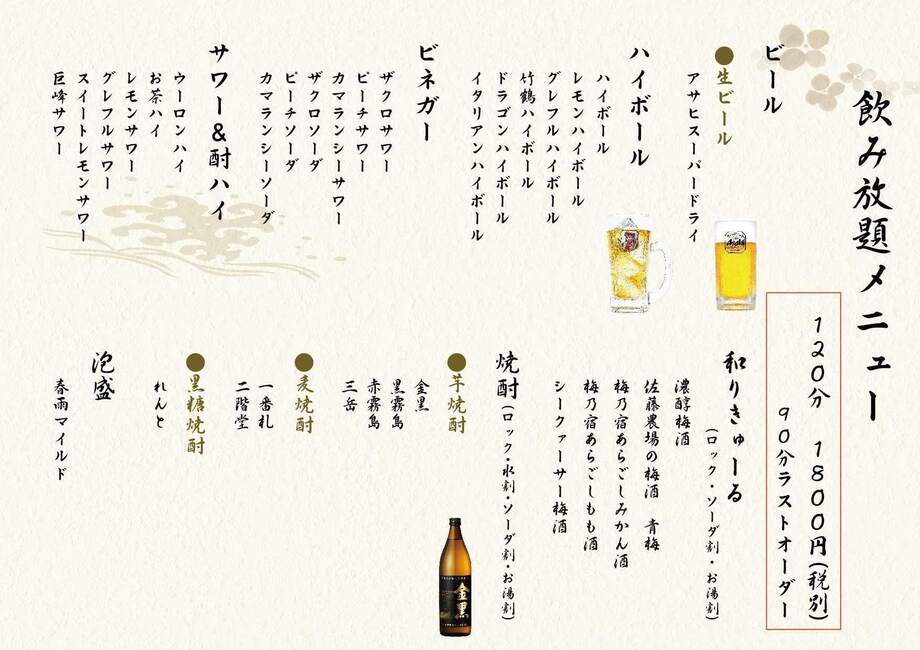 飲み放題メニュー
120分 1800円(税別)
90分ラストオーダー
ビール
●生ビール
アサヒスーパードライ
ハイボール
ハイボール
レモンハイボール
グレフルハイボール
竹鶴ハイボール
ドラゴンハイボール
イタリアンハイボール
ビネガー
ザクロサワー
ピーチサワー
カマランシーサワー
ザクロソーダ
ピーチソーダ
カマランシーソーダ
サワー&酎ハイ
ウーロンハイ
お茶ハイ
レモンサワー
グレフルサワー
スイートレモンサワー
巨峰サワー
和りきゅーる
(ロック・ソーダ割・お湯割)
濃醇梅酒
佐藤農場の梅酒 青梅
梅乃宿あらごしみかん酒
梅乃宿あらごしもも酒
シークァーサー梅酒
焼酎(ロック・水割・ソーダ割・お湯割)
●芋焼酎
金黒
黒霧島
赤霧島
三岳
●麦焼酎
一番札
二階堂
●黒糖焼酎
れんと
泡盛
春雨マイルド
Asahi
金黒